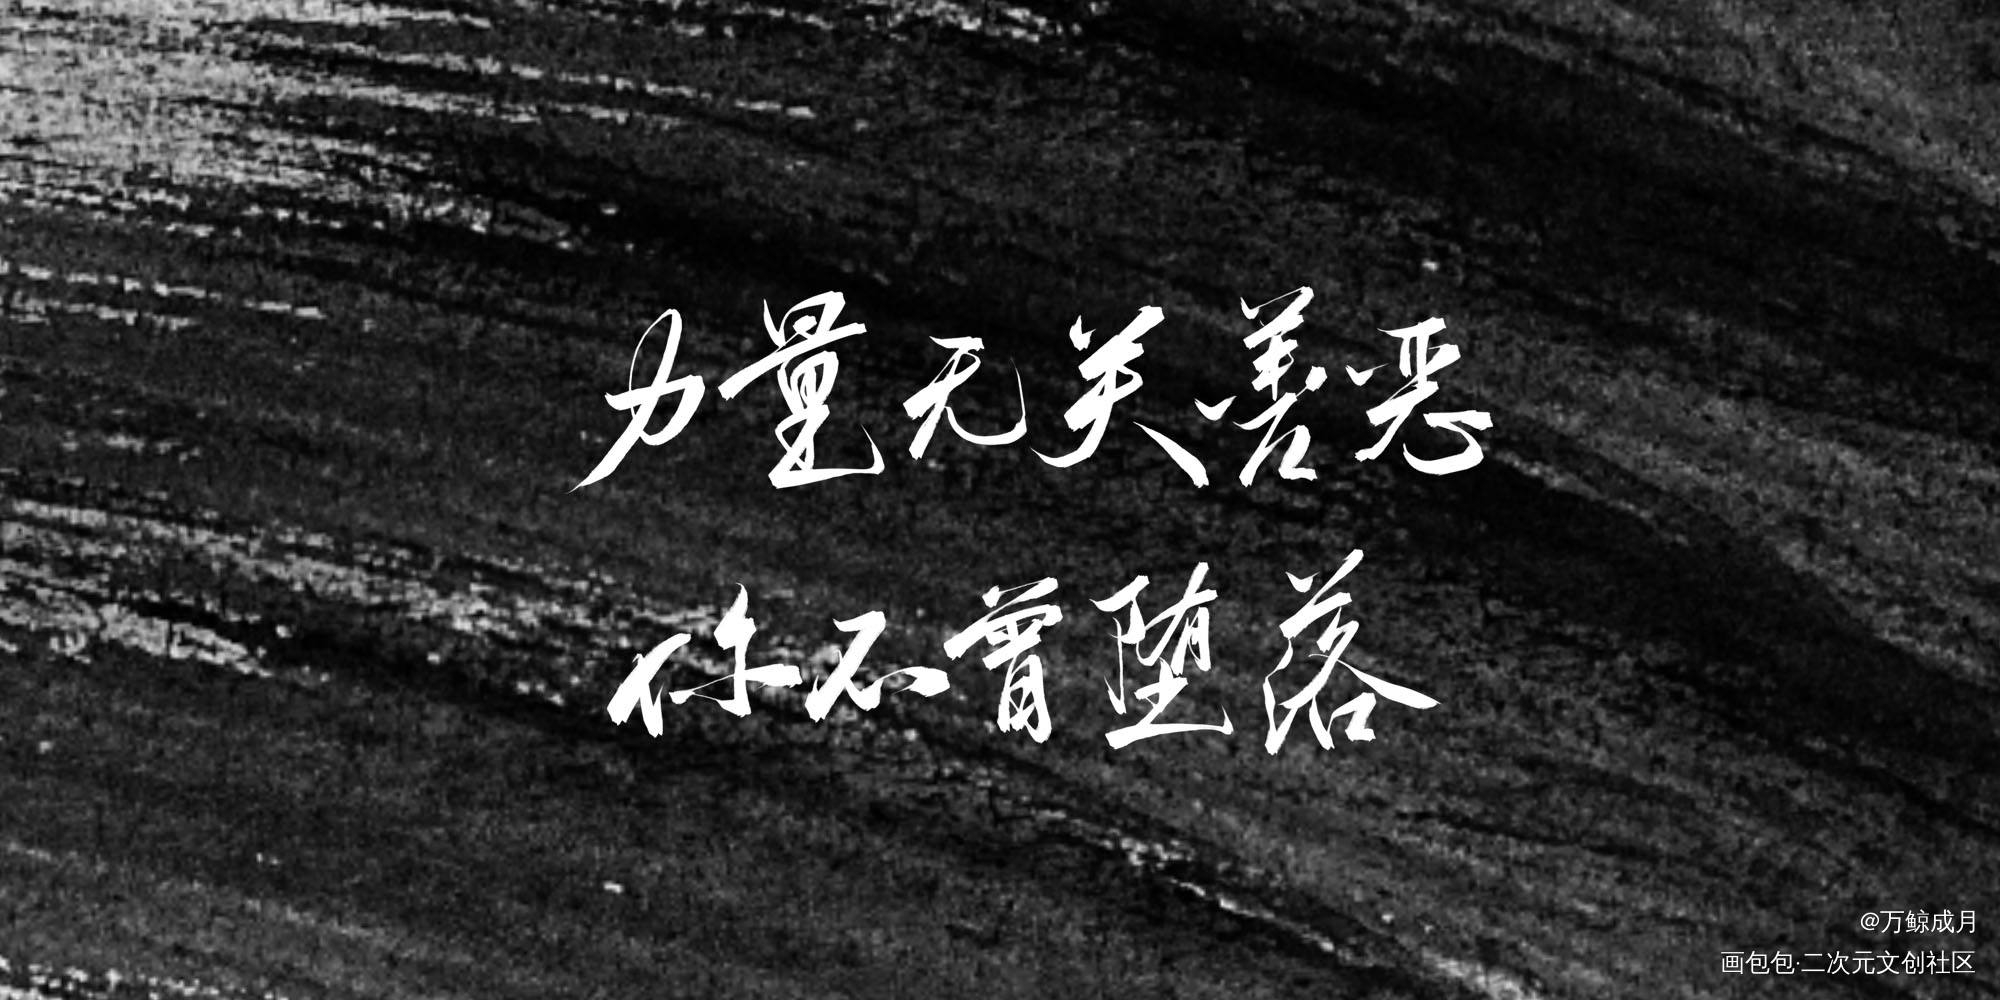 力量无关善恶
你不曾堕落
@万鲸成月
画包包·二次元文创社区